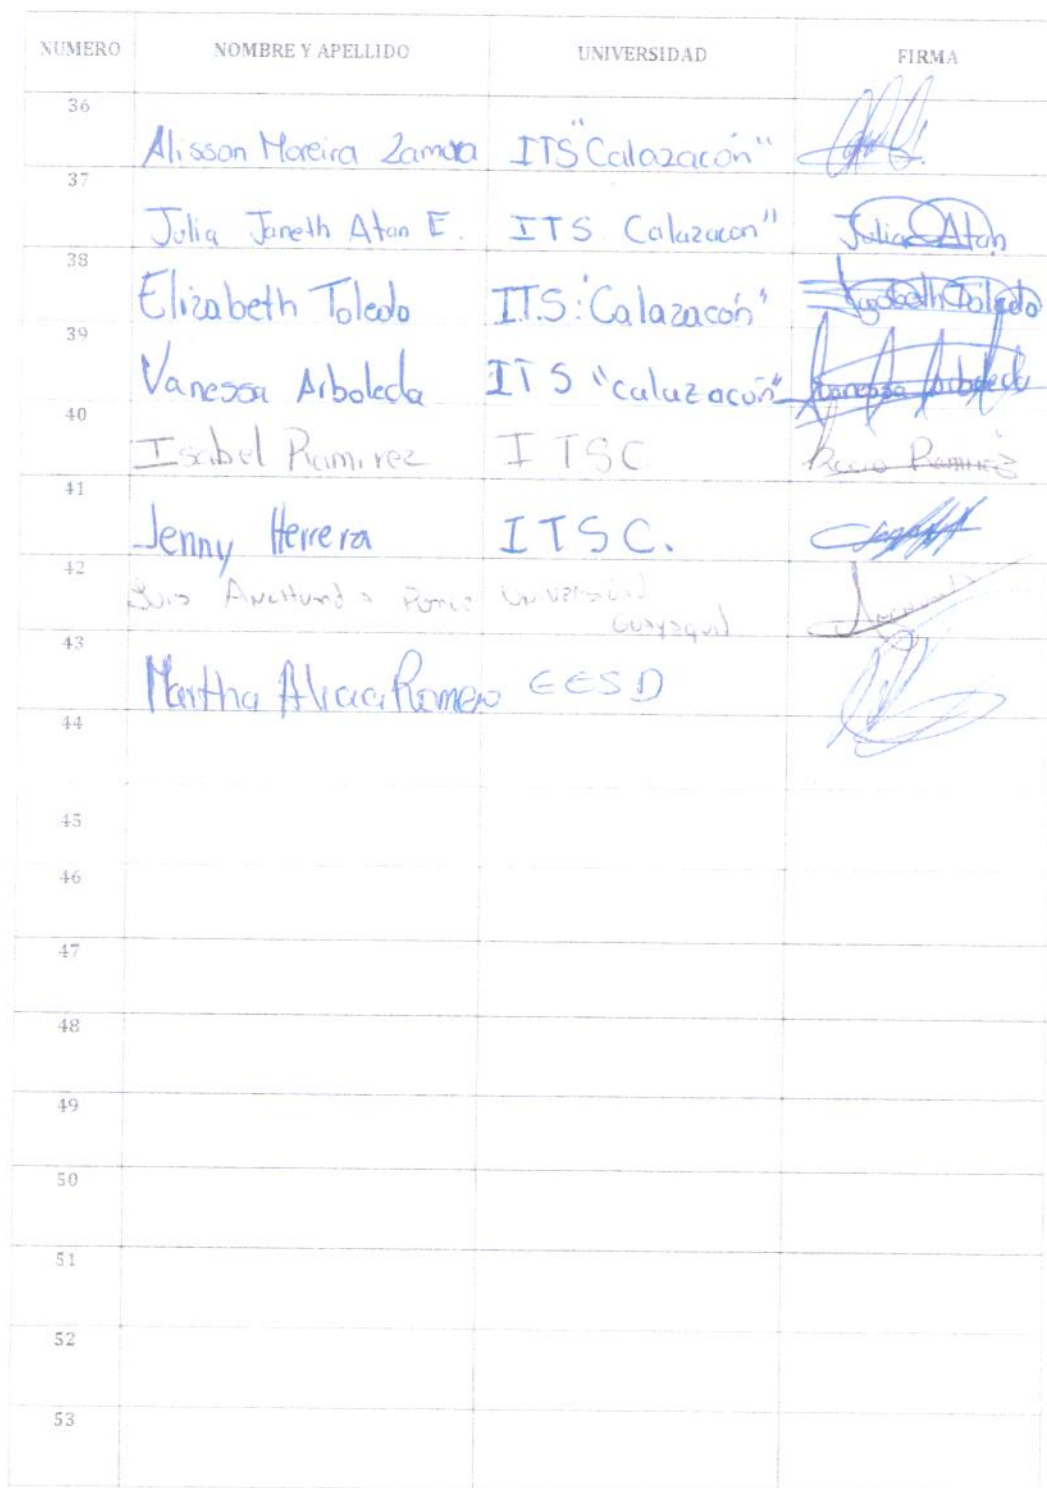 NUMERO NOMBRE Y APELLIDO UNIVERSIDAD FIRMA
36 Alisson Moreira Zamora ITS "Calazacón"
37 Julia Janeth Atan E. ITS Calazacon" Julia Atan
38 Elizabeth Toledo I.T.S. "Calazacón" Toledo
39 Vanessa Arboleda ITS "calazacón" Vanessa Arboleda
40 Isabel Ramirez ITSC Rocio Ramirez
41 Jenny Herrera ITSC.
42 Luis Universidad
Guayaquil
43 Martha Romero EESD
44
45
46
47
48
49
50
51
52
53